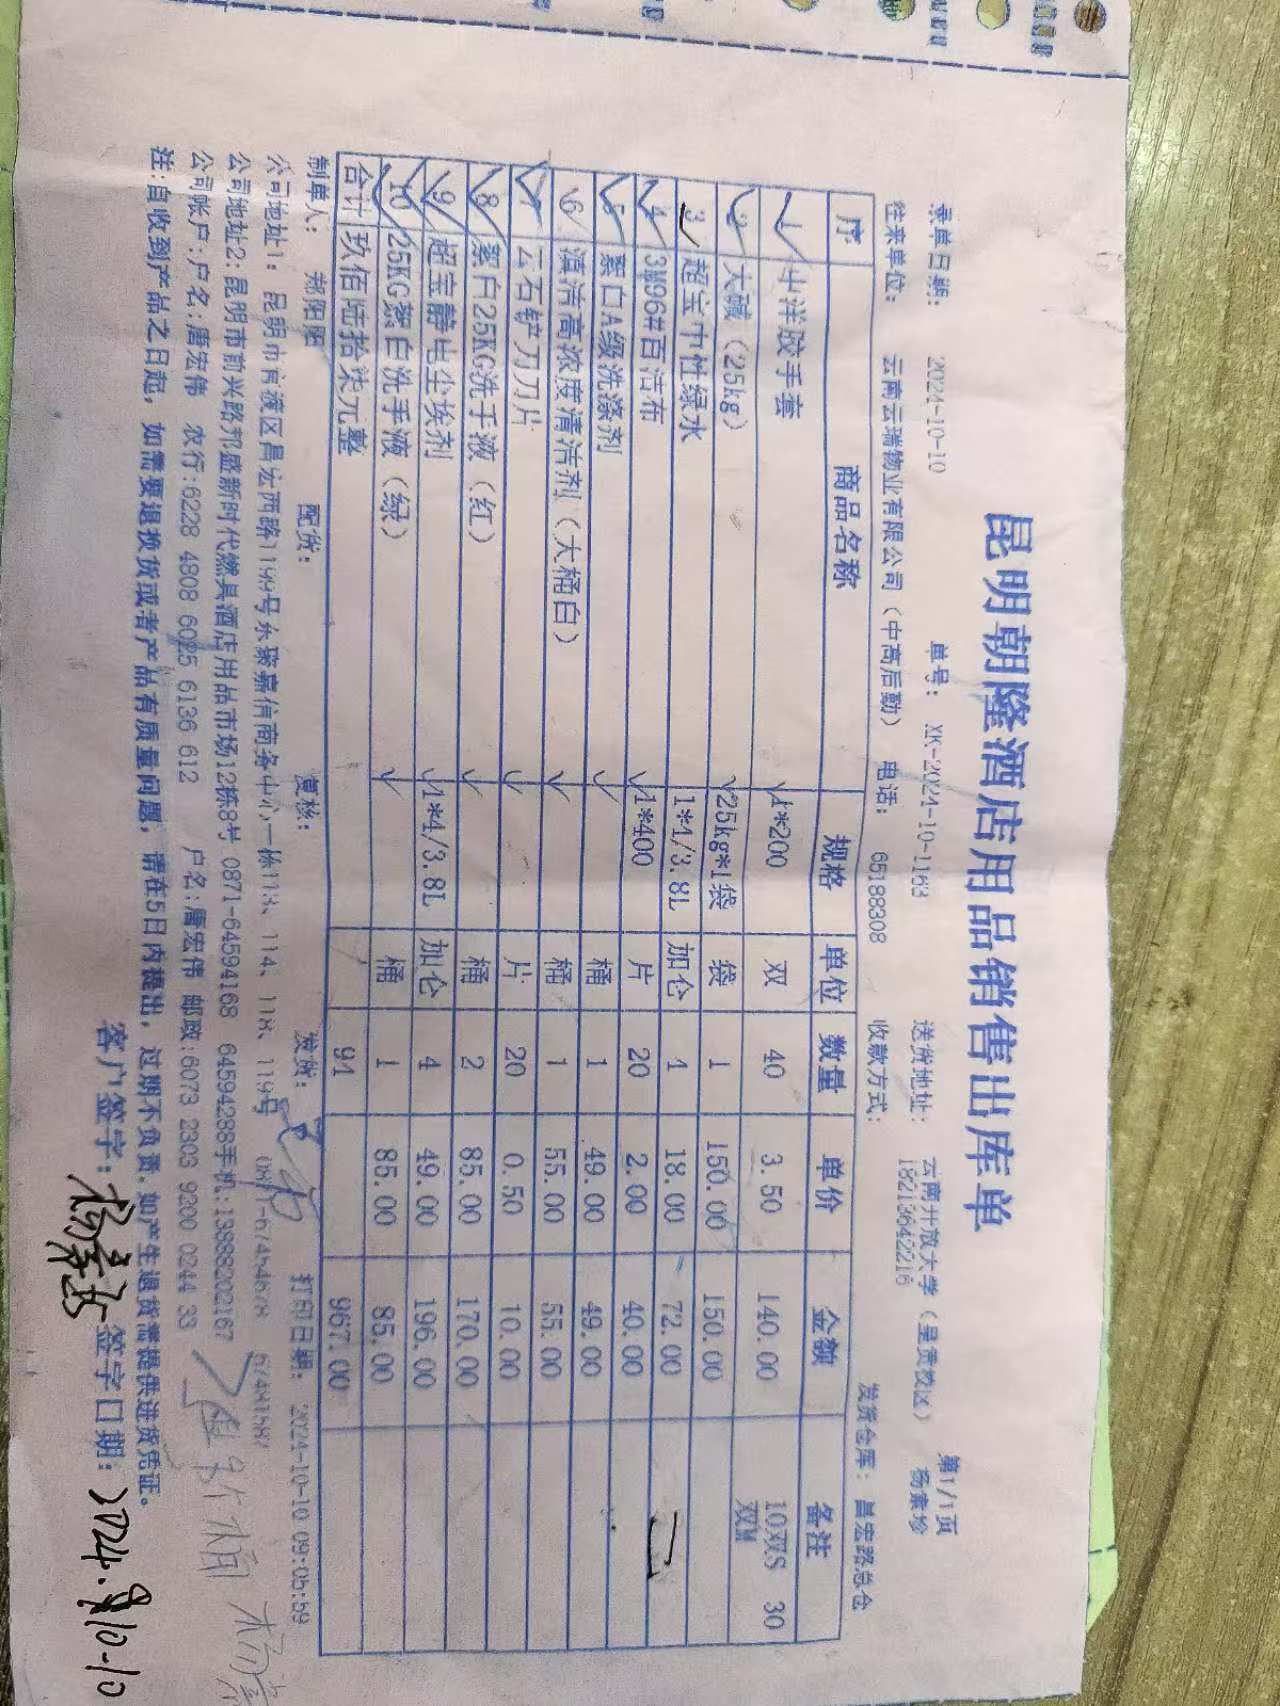 昆明朝隆酒店用品销售出库单
第1/1页
录单日期： 2024-10-10 单号： XK-2024-10-1163 送货地址： 云南开放大学（呈贡校区） 杨素珍
18213642216
往来单位： 云南云瑞物业有限公司（中高后勤） 电话： 65188308 收款方式： 发货仓库： 昌宏路总仓
序 商品名称 规格 单位 数量 单价 金额 备注
1 牛洋胶手套 1*200 双 40 3.50 140.00 10双S 30双M
2 大碱（25kg） 25kg*1袋 袋 1 150.00 150.00
3 超宝中性绿水 1*4/3.8L 加仑 4 18.00 72.00
4 3M96#百洁布 1*400 片 20 2.00 40.00
5 絮白A级洗涤剂 桶 1 49.00 49.00
6 滇洁高浓度清洁剂（大桶白） 桶 1 55.00 55.00
7 云石铲刀刀片 片 20 0.50 10.00
8 絮白25KG洗手液（红） 桶 2 85.00 170.00
9 超宝静电尘埃剂 1*4/3.8L 加仑 4 49.00 196.00
10 25KG絮白洗手液（绿） 桶 1 85.00 85.00
合计 玖佰陆拾柒元整 94 967.00
制单人： 郑阳阳 配货： 复核： 发货： 打印日期： 2024-10-10 09:05:59
公司地址1： 昆明市官渡区昌宏西路1199号东聚嘉信商务中心一栋113、114、118、119号 0871-67454678 67481587
公司地址2:昆明市前兴路邦盛新时代燃具酒店用品市场12栋8号 0871-64594168 64594288手机:13888202167
公司帐户:户名:唐宏伟 农行:6228 4808 6025 6136 612 户名:唐宏伟 邮政:6073 2303 9200 0244 33
注:自收到产品之日起，如需要退换货或者产品有质量问题，请在5日内提出，过期不负责.如产生退货需提供进货凭证。
客户签字: 签字日期: 2024.10-10